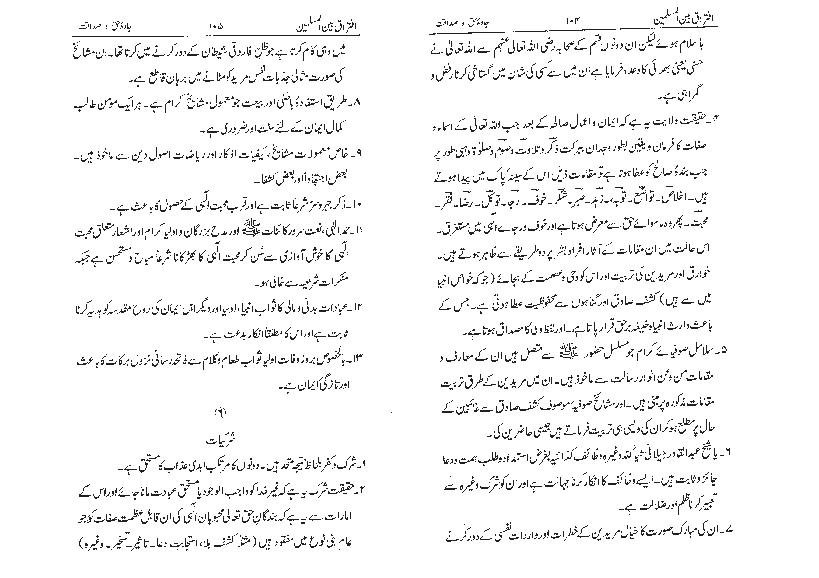 افتراق بین المسلمین ۱۰۴ جادۂ حق و صداقت
با سلام ہوئے لیکن ان دونوں قسم کے صحابہ رضی اللہ تعالیٰ عنہم سے اللہ تعالیٰ نے
حسنیٰ یعنی بھلائی کا وعدہ فرمایا ہے ان میں سے کسی کی شان میں گستاخی کرنا رفض و
گمراہی ہے۔
۴۔ حقیقت ولایت یہ ہے کہ ایمان و اعمال صالحہ کے بعد جب اللہ تعالیٰ کے اسماء و
صفات کا فرمان و یقین بطور وجدان ببرکت ذکر و تلاوت و صوم و صلوٰۃ وہبی طور پر
جب بندۂ صالح کو عطا ہوتا ہے تو مقامات ذیل اس کے سینہ پاک میں پیدا ہوتے
ہیں۔ اخلاص۔ تواضع۔ توبہ۔ زہد۔ صبر۔ شکر۔ خوف۔ رجا۔ توکل۔ رضا۔ فقر۔
محبت۔ پھر وہ ماسوائے حق سے معرض ہوتا ہے اور خوف و رجائے الٰہی میں مستغرق۔
اس حالت میں ان مقامات کے آثار افراد بشر پر دو طریقے سے ظاہر ہوتے ہیں۔
خوارق اور مریدین کی تربیت اور اس کو وحی و عصمت کے بجائے (جو کہ خواص انبیا
میں سے ہیں) کشف صادق اور گناہوں سے محفوظیت عطا ہوتی ہے۔ جس کے
باعث وارث انبیاء و خلیفہ برحق قرار پاتا ہے۔ اور لفظ ولی کا مصداق ہوتا ہے۔
۵۔ سلاسل صوفیائے کرام جو مسلسل حضور ﷺ سے متصل ہیں ان کے معارف و
مقامات من و عن انوار رسالت سے ماخوذ ہیں۔ ان میں مریدین کے طرق تربیت
مقامات مذکورہ پر مبنی ہیں۔ اور مشائخ صوفیہ موصوف کشف صادق سے غائبین کے
حال پر مطلع ہو کر ان کی ویسی ہی تربیت فرماتے ہیں جیسی حاضرین کی۔
۶۔ یا شیخ عبدالقادر جیلانی شیئاً للہ وغیرہ وظائف ندائیہ بغرض استمداد و طلب ہمت و دعا
جائز و ثابت ہیں۔ ایسے وظائف کا انکار کرنا جہالت ہے اور ان کو شرک وغیرہ سے
تعبیر کرنا ظلم اور ضلالت ہے۔
۷۔ ان کی مبارک صورت کا خیال مریدین کے خطرات اور واردات نفسی کے دور کرنے
افتراق بین المسلمین ۱۰۵ جادۂ حق و صداقت
میں وہی کام کرتا ہے جو ظل فاروقی شیطان کے دور کرنے میں کرتا تھا۔ ان مشائخ
کی صورت مثالی جذبات نفس مرید کو مٹانے میں برہان قاطع ہے۔
۸۔ طریق استفادۂ باطنی اور بیعت جو معمول مشائخ کرام ہے۔ ہر ایک مؤمن طالب
کمال ایمان کے لئے سنت اور ضروری ہے۔
۹۔ خاص معمولات مشائخ، کیفیات اذکار اور ریاضات اصول دین سے ماخوذ ہیں۔
بعض اجتہاداً اور بعض کشفاً۔
۱۰۔ ذکر جہر و سر شرعاً ثابت ہے اور قرب محبت الٰہی کے حصول کا باعث ہے۔
۱۱۔ حمد الٰہی، نعت سرور کائنات ﷺ اور مدح بزرگان و اولیا کرام اور اشعار متعلق محبت
الٰہی کا خوش آوازی سے سن کر محبت الٰہی کا بھڑکانا شرعاً مباح و مستحسن ہے جبکہ
منکرات شرعیہ سے خالی ہو۔
۱۲۔ عبادات بدنی و مالی کا ثواب انبیاء، اولیا اور دیگر اہل ایمان کی روح مقدسہ کو ہدیہ کرنا
ثابت ہے اور اس کا مطلقاً انکار بدعت ہے۔
۱۳۔ بالخصوص بروز وفات اولیا ثواب طعام و کلام سے فاتحہ رسانی نزول برکات کا باعث
اور تازگی ایمان ہے۔
(۶)
شرکیات
۱۔ شرک و کفر بلحاظ نتیجہ متحد ہیں۔ دونوں کا مرتکب ابدی عذاب کا مستحق ہے۔
۲۔ حقیقت شرک یہ ہے کہ غیر خدا کو واجب الوجود یا مستحق عبادت مانا جائے اور اس کے
امارات سے یہ ہے کہ بندگان حق تعالیٰ محبوبان الٰہی کی ان قابل عظمت صفات کو جو
عام بنی نوع میں مفقود ہیں (مثلاً کشف بلا، استجابت دعا۔ تاثیر۔ تسخیر۔ وغیرہ)